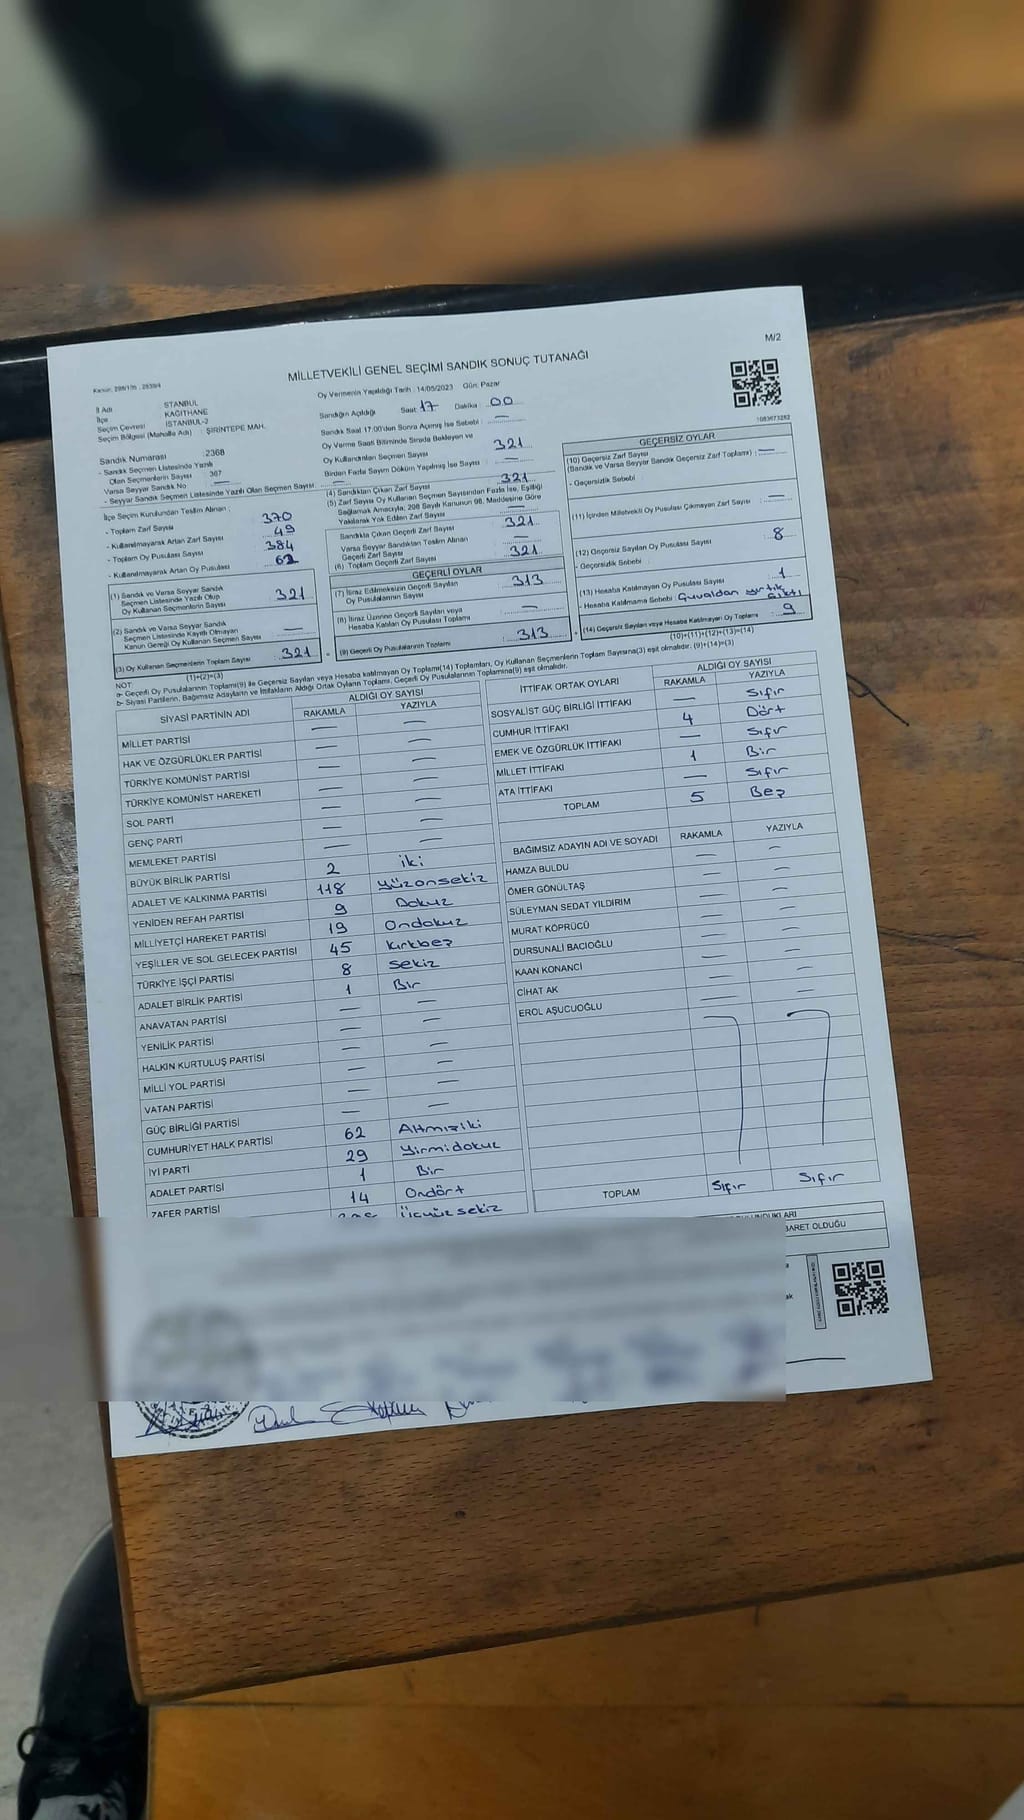 M/2
MİLLETVEKİLİ GENEL SEÇİMİ SANDIK SONUÇ TUTANAĞI
Oy Vermenin Yapıldığı Tarih : 14/05/2023 Gün: Pazar
İl Adı : İSTANBUL
İlçe : KAĞITHANE
Seçim Çevresi : İSTANBUL-2
Seçim Bölgesi (Mahalle Adı) : ŞİRİNTEPE MAH.
Sandık Numarası : 2368
- Sandık Seçmen Listesinde Yazılı
Olan Seçmenlerin Sayısı : 367
Varsa Seyyar Sandık No : —
- Seyyar Sandık Seçmen Listesinde Yazılı Olan Seçmen Sayısı : —
Sandığın Açıldığı Saat: 17 Dakika : 00
Sandık Saat 17:00'den Sonra Açılmış İse Sebebi : —
Oy Verme Saati Bitiminde Sırada Bekleyen ve
Oy Kullandırılan Seçmen Sayısı 321
Birden Fazla Sayım Döküm Yapılmış İse Sayısı : —
İlçe Seçim Kurulundan Teslim Alınan :
- Toplam Zarf Sayısı 370
- Kullanılmayarak Artan Zarf Sayısı 49
- Toplam Oy Pusulası Sayısı 384
- Kullanılmayarak Artan Oy Pusulası 62
(1) Sandık ve Varsa Seyyar Sandık
Seçmen Listesinde Yazılı Olup
Oy Kullanan Seçmenlerin Sayısı 321
(2) Sandık ve Varsa Seyyar Sandık
Seçmen Listesinde Kayıtlı Olmayan
Kanun Gereği Oy Kullanan Seçmen Sayısı —
(3) Oy Kullanan Seçmenlerin Toplam Sayısı 321
(1)+(2)=(3)
(4) Sandıktan Çıkan Zarf Sayısı 321
(5) Zarf Sayısı Oy Kullanan Seçmen Sayısından Fazla İse, Eşitliği
Sağlamak Amacıyla; 298 Sayılı Kanunun 98. Maddesine Göre
Yakılarak Yok Edilen Zarf Sayısı —
Sandıkta Çıkan Geçerli Zarf Sayısı 321
Varsa Seyyar Sandıktan Teslim Alınan
Geçerli Zarf Sayısı —
(6) Toplam Geçerli Zarf Sayısı 321
GEÇERLİ OYLAR
(7) İtiraz Edilmeksizin Geçerli Sayılan
Oy Pusulalarının Sayısı 313
(8) İtiraz Üzerine Geçerli Sayılan veya
Hesaba Katılan Oy Pusulası Toplamı —
(9) Geçerli Oy Pusulalarının Toplamı 313
GEÇERSİZ OYLAR
(10) Geçersiz Zarf Sayısı
(Sandık ve Varsa Seyyar Sandık Geçersiz Zarf Toplamı) : —
- Geçersizlik Sebebi
(11) İçinden Milletvekili Oy Pusulası Çıkmayan Zarf Sayısı —
(12) Geçersiz Sayılan Oy Pusulası Sayısı 8
- Geçersizlik Sebebi :
(13) Hesaba Katılmayan Oy Pusulası Sayısı 1
- Hesaba Katılmama Sebebi : Çuvaldan yırtık çıktı
(14) Geçersiz Sayılan veya Hesaba Katılmayan Oy Toplamı : 9
(10)+(11)+(12)+(13)=(14)
NOT:
a- Geçerli Oy Pusulalarının Toplamı(9) ile Geçersiz Sayılan veya Hesaba katılmayan Oy Toplamı(14) Toplamları, Oy Kullanan Seçmenlerin Toplam Sayısına(3) eşit olmalıdır. (9)+(14)=(3)
b- Siyasi Partilerin, Bağımsız Adayların ve İttifakların Aldığı Ortak Oyların Toplamı, Geçerli Oy Pusulalarının Toplamına(9) eşit olmalıdır.
SİYASİ PARTİNİN ADI ALDIĞI OY SAYISI
RAKAMLA YAZIYLA
MİLLET PARTİSİ — —
HAK VE ÖZGÜRLÜKLER PARTİSİ — —
TÜRKİYE KOMÜNİST PARTİSİ — —
TÜRKİYE KOMÜNİST HAREKETİ — —
SOL PARTİ — —
GENÇ PARTİ — —
MEMLEKET PARTİSİ — —
BÜYÜK BİRLİK PARTİSİ 2 iki
ADALET VE KALKINMA PARTİSİ 118 Yüzonsekiz
YENİDEN REFAH PARTİSİ 9 Dokuz
MİLLİYETÇİ HAREKET PARTİSİ 19 Ondokuz
YEŞİLLER VE SOL GELECEK PARTİSİ 45 Kırkbeş
TÜRKİYE İŞÇİ PARTİSİ 8 Sekiz
ADALET BİRLİK PARTİSİ 1 Bir
ANAVATAN PARTİSİ — —
YENİLİK PARTİSİ — —
HALKIN KURTULUŞ PARTİSİ — —
MİLLİ YOL PARTİSİ — —
VATAN PARTİSİ — —
GÜÇ BİRLİĞİ PARTİSİ — —
CUMHURİYET HALK PARTİSİ 62 Altmışiki
İYİ PARTİ 29 Yirmidokuz
ADALET PARTİSİ 1 Bir
ZAFER PARTİSİ 14 Ondört
Üçyüzsekiz
İTTİFAK ORTAK OYLARI ALDIĞI OY SAYISI
RAKAMLA YAZIYLA
SOSYALİST GÜÇ BİRLİĞİ İTTİFAKI — Sıfır
CUMHUR İTTİFAKI 4 Dört
EMEK VE ÖZGÜRLÜK İTTİFAKI — Sıfır
MİLLET İTTİFAKI 1 Bir
ATA İTTİFAKI — Sıfır
TOPLAM 5 Beş
BAĞIMSIZ ADAYIN ADI VE SOYADI RAKAMLA YAZIYLA
HAMZA BULDU — —
ÖMER GÖNÜLTAŞ — —
SÜLEYMAN SEDAT YILDIRIM — —
MURAT KÖPRÜCÜ — —
DURSUNALİ BACIOĞLU — —
KAAN KONANCI — —
CİHAT AK — —
EROL AŞUCUOĞLU — —
TOPLAM Sıfır Sıfır
BARET OLDUĞU